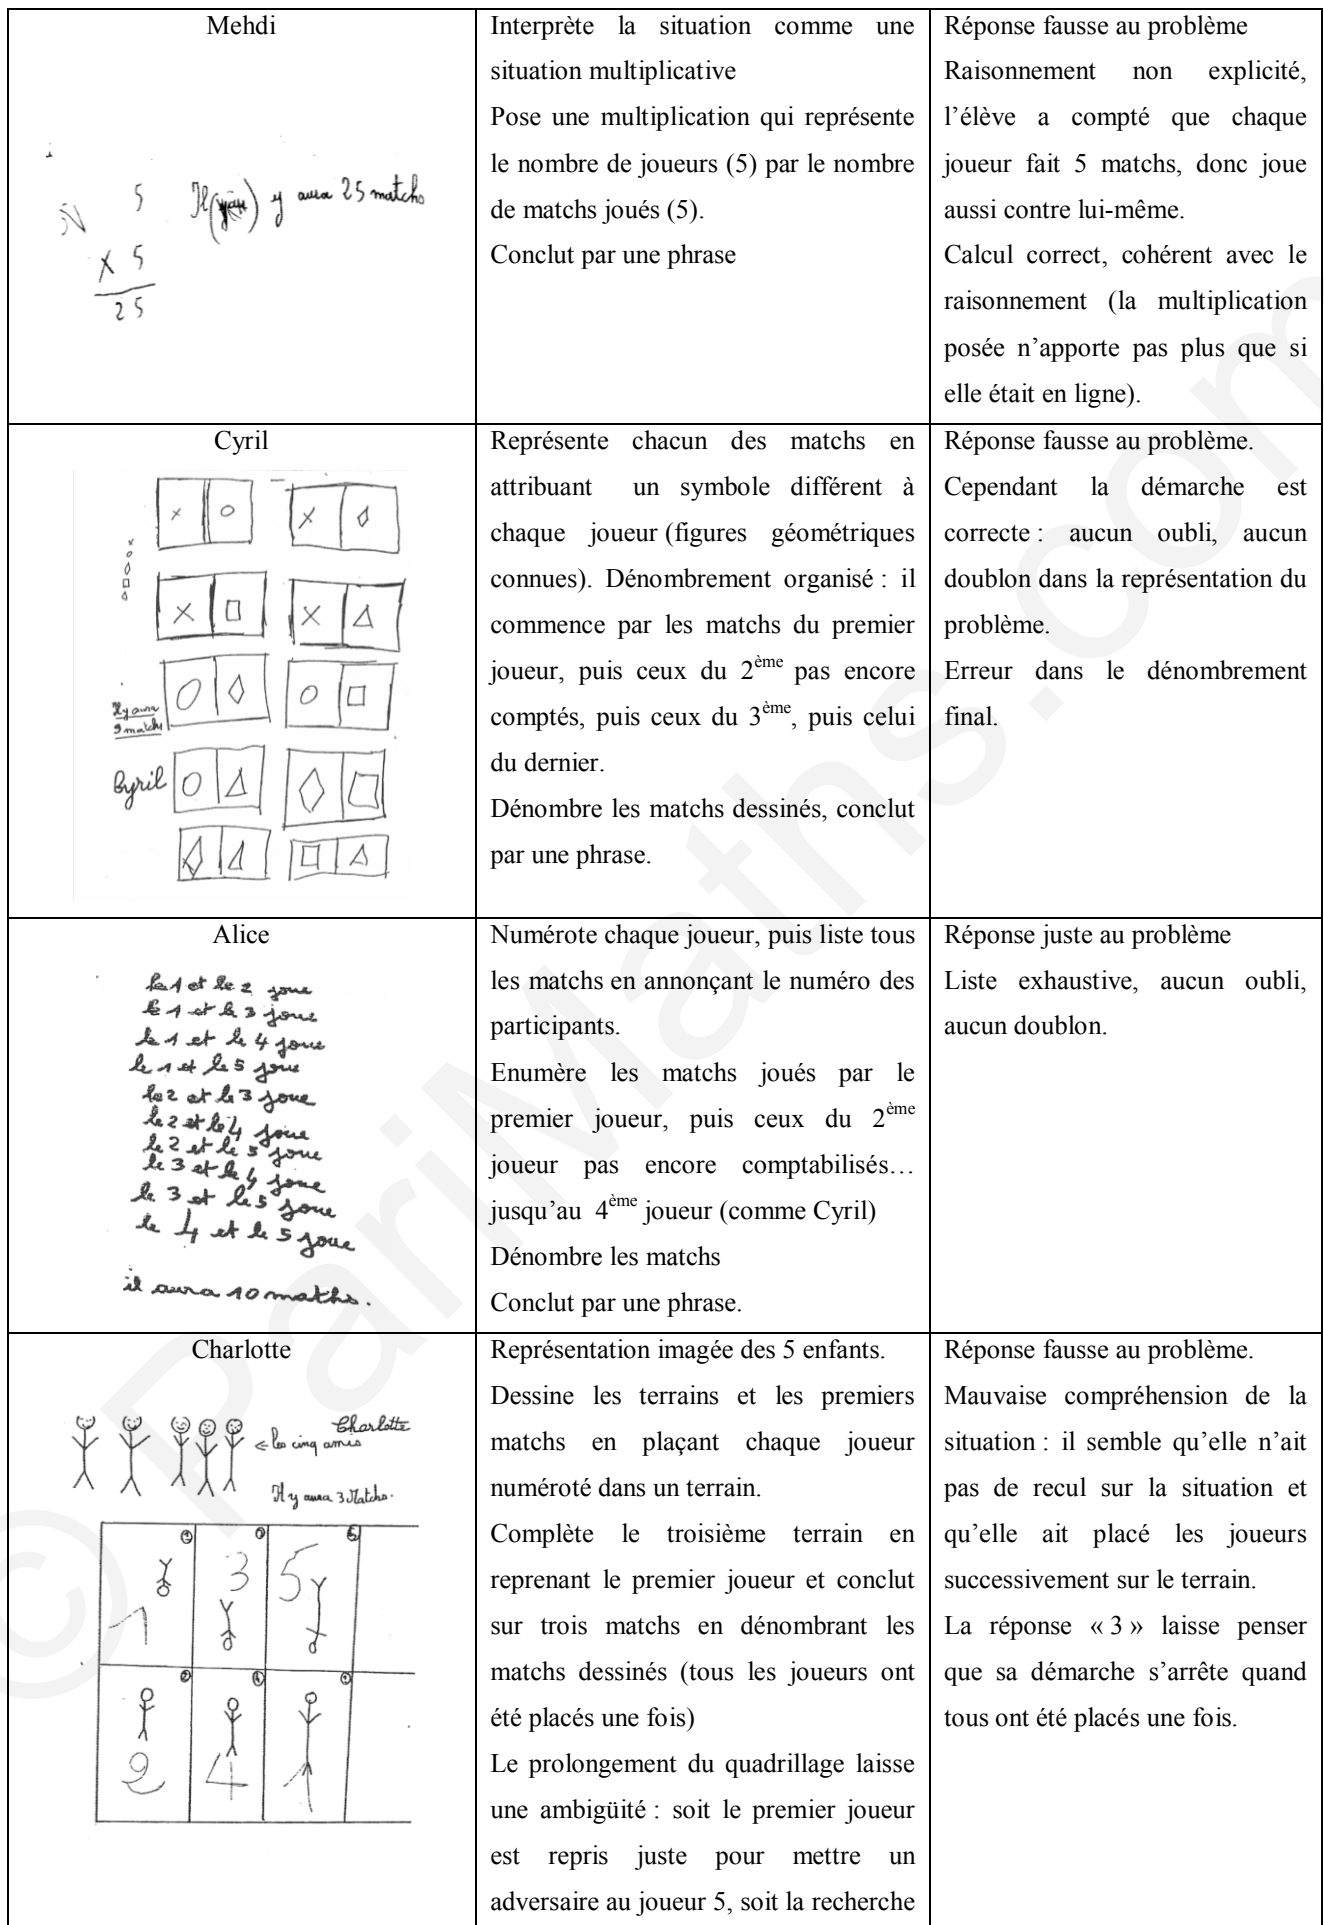 Mehdi
5 Il y aura 25 matchs
X 5
25
Interprète la situation comme une
situation multiplicative
Pose une multiplication qui représente
le nombre de joueurs (5) par le nombre
de matchs joués (5).
Conclut par une phrase
Réponse fausse au problème
Raisonnement non explicité,
l’élève a compté que chaque
joueur fait 5 matchs, donc joue
aussi contre lui-même.
Calcul correct, cohérent avec le
raisonnement (la multiplication
posée n’apporte pas plus que si
elle était en ligne).
Cyril
Il y aura
9 matchs
Cyril
Représente chacun des matchs en
attribuant un symbole différent à
chaque joueur (figures géométriques
connues). Dénombrement organisé : il
commence par les matchs du premier
joueur, puis ceux du 2ème pas encore
comptés, puis ceux du 3ème, puis celui
du dernier.
Dénombre les matchs dessinés, conclut
par une phrase.
Réponse fausse au problème.
Cependant la démarche est
correcte : aucun oubli, aucun
doublon dans la représentation du
problème.
Erreur dans le dénombrement
final.
Alice
le 1 et le 2 joue
le 1 et le 3 joue
le 1 et le 4 joue
le 1 et le 5 joue
le 2 et le 3 joue
le 2 et le 4 joue
le 2 et le 5 joue
le 3 et le 4 joue
le 3 et le 5 joue
le 4 et le 5 joue
il aura 10 maths.
Numérote chaque joueur, puis liste tous
les matchs en annonçant le numéro des
participants.
Enumère les matchs joués par le
premier joueur, puis ceux du 2ème
joueur pas encore comptabilisés…
jusqu’au 4ème joueur (comme Cyril)
Dénombre les matchs
Conclut par une phrase.
Réponse juste au problème
Liste exhaustive, aucun oubli,
aucun doublon.
Charlotte
Charlotte
les cinq amis
Il y aura 3 Matchs.
1 3 5
2 4 1
Représentation imagée des 5 enfants.
Dessine les terrains et les premiers
matchs en plaçant chaque joueur
numéroté dans un terrain.
Complète le troisième terrain en
reprenant le premier joueur et conclut
sur trois matchs en dénombrant les
matchs dessinés (tous les joueurs ont
été placés une fois)
Le prolongement du quadrillage laisse
une ambigüité : soit le premier joueur
est repris juste pour mettre un
adversaire au joueur 5, soit la recherche
Réponse fausse au problème.
Mauvaise compréhension de la
situation : il semble qu’elle n’ait
pas de recul sur la situation et
qu’elle ait placé les joueurs
successivement sur le terrain.
La réponse « 3 » laisse penser
que sa démarche s’arrête quand
tous ont été placés une fois.
© PariMaths.com